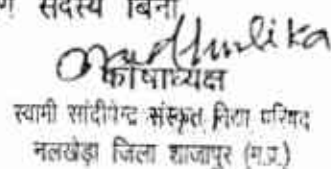 सदस्य बिना
Madhulika
कोषाध्यक्ष
स्वामी सांदीपेन्द्र संस्कृत विद्या परिषद
नलखेड़ा जिला शाजापुर (म.प्र.)